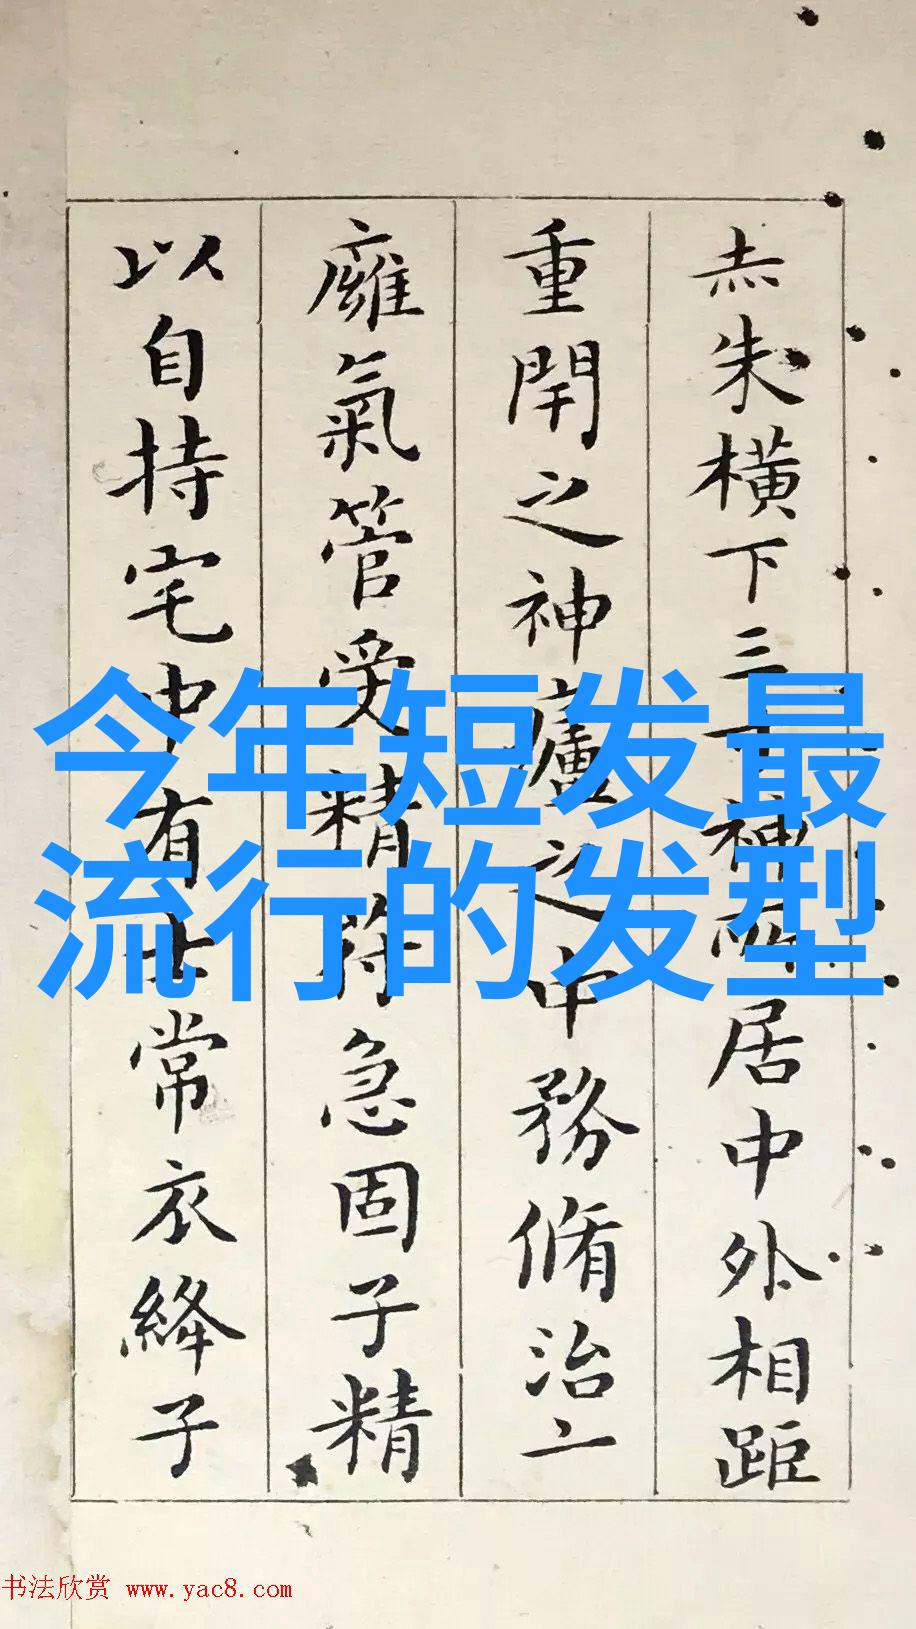 赤朱橫下三寸神所居中外相距
重閉之神廬之中務脩治二
廱氣管受精符急固子精
以自持宅中有士常衣絳子
今年短发最
流行的发型
书法欣赏 www.yac8.com